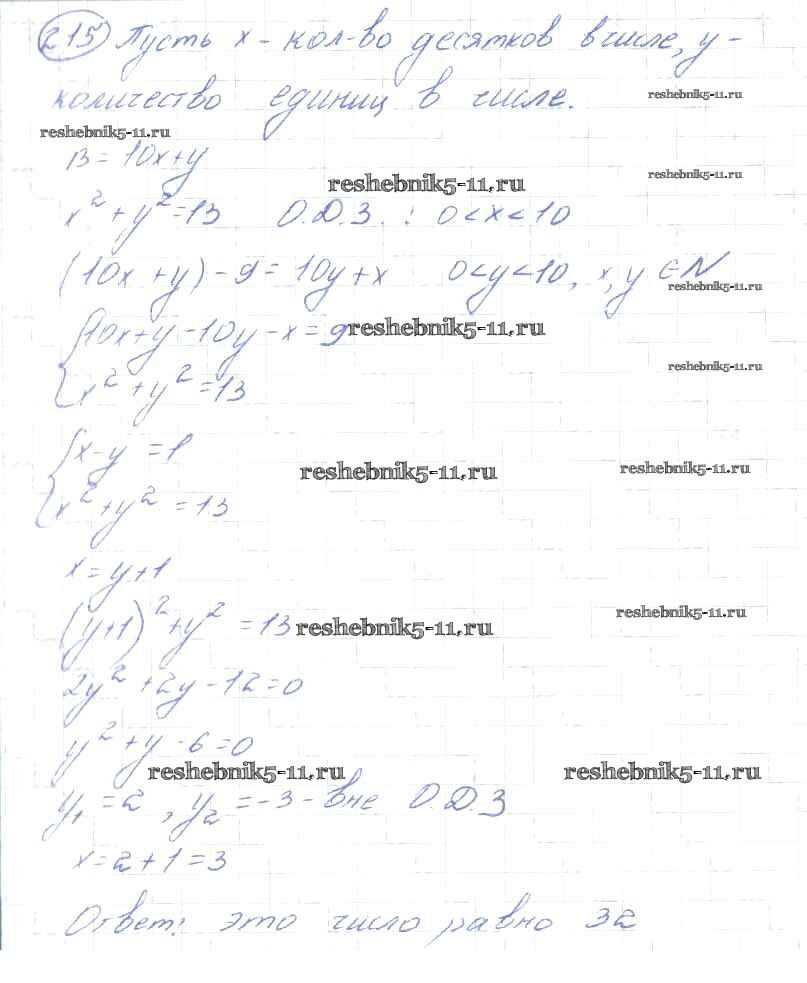 215 Пусть x - кол-во десятков в числе, y -
количество единиц в числе.
reshebnik5-11.ru
reshebnik5-11.ru
13 = 10x+y
reshebnik5-11.ru
reshebnik5-11.ru
x² + y² = 13 О.Д.З. : 0 < x < 10
(10x + y) - 9 = 10y + x 0 < y < 10, x, y ∈ N
reshebnik5-11.ru
{10x + y - 10y - x = 9
reshebnik5-11.ru
{x² + y² = 13
reshebnik5-11.ru
{x - y = 1
reshebnik5-11.ru
reshebnik5-11.ru
{x² + y² = 13
x = y + 1
(y+1)² + y² = 13
reshebnik5-11.ru
reshebnik5-11.ru
2y² + 2y - 12 = 0
y² + y - 6 = 0
reshebnik5-11.ru
reshebnik5-11.ru
y₁ = 2, y₂ = -3 - вне О.Д.З
x = 2 + 1 = 3
Ответ: это число равно 32